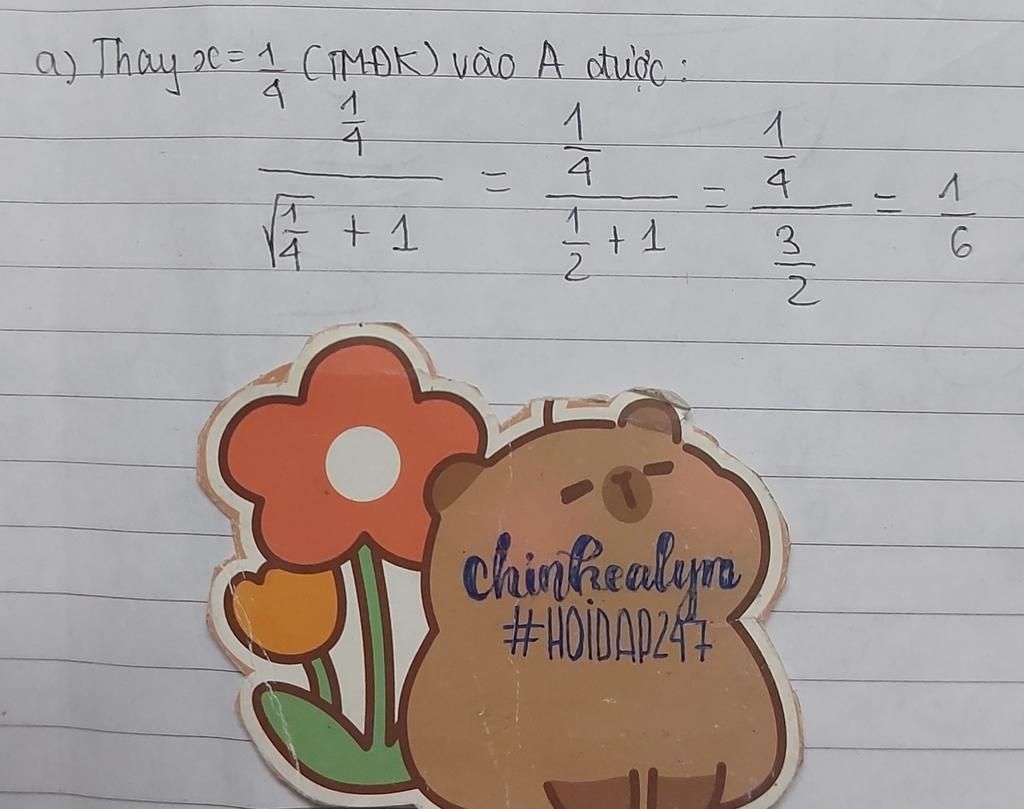 a) Thay x = 1/4 (TMĐK) vào A được:
(1/4)/(√(1/4) + 1) = (1/4)/(1/2 + 1) = (1/4)/(3/2) = 1/6
chinhealyra
#HOIDAP247